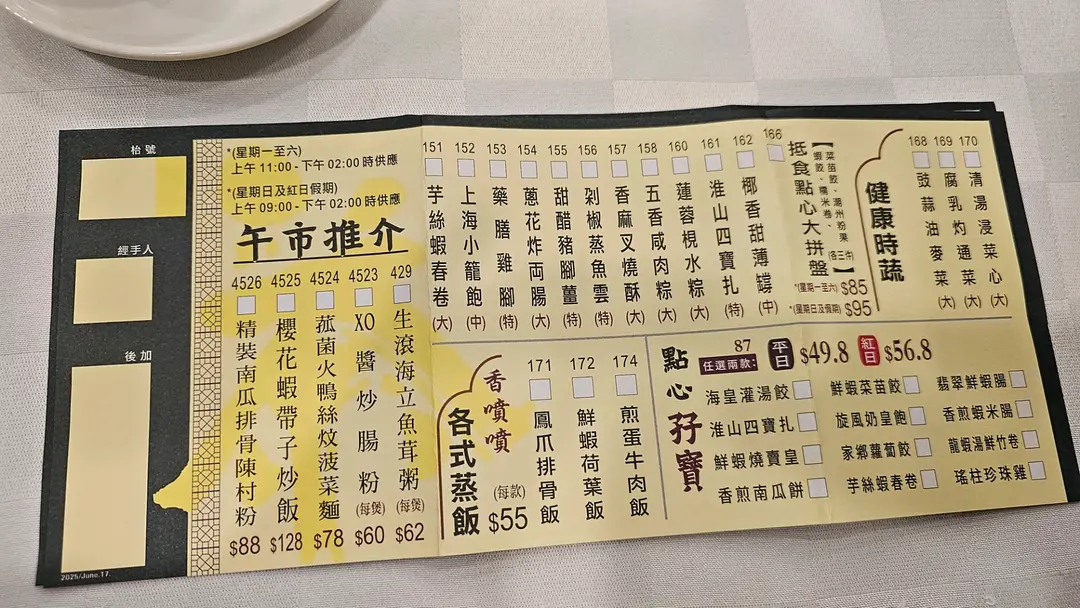 枱號
經手人
後加
2025/June.17.
*(星期一至六)
上午 11:00 - 下午 02:00 時供應
*(星期日及紅日假期)
上午 09:00 - 下午 02:00 時供應
午市推介
4526 精裝南瓜排骨陳村粉 $88
4525 櫻花蝦帶子炒飯 $128
4524 菰菌火鴨絲炆菠菜麵 $78
4523 XO醬炒腸粉 (每煲) $60
429 生滾海立魚茸粥 (每煲) $62
151 芋絲蝦春卷 (大)
152 上海小籠飽 (中)
153 藥膳雞腳 (特)
154 蔥花炸両腸 (大)
155 甜醋豬腳薑 (特)
156 剁椒蒸魚雲 (特)
157 香麻叉燒酥 (大)
158 五香咸肉粽 (大)
160 蓮蓉梘水粽 (大)
161 淮山四寶扎 (特)
162 椰香甜薄罉 (中)
166 抵食點心大拼盤
【菜苗餃、潮州粉果
蝦餃、糯米卷、 (各三件)】
*(星期一至六) $85
*(星期日及假期) $95
健康時蔬
168 豉蒜油麥菜 (大)
169 腐乳灼通菜 (大)
170 清湯浸菜心 (大)
香噴噴
各式蒸飯
(每款) $55
171 鳳爪排骨飯
172 鮮蝦荷葉飯
174 煎蛋牛肉飯
點心孖寶
87
任選兩款: 平日 $49.8 紅日 $56.8
海皇灌湯餃 鮮蝦菜苗餃 翡翠鮮蝦腸
淮山四寶扎 旋風奶皇飽 香煎蝦米腸
鮮蝦燒賣皇 家鄉蘿蔔餃 龍蝦湯鮮竹卷
香煎南瓜餅 芋絲蝦春卷 瑤柱珍珠雞